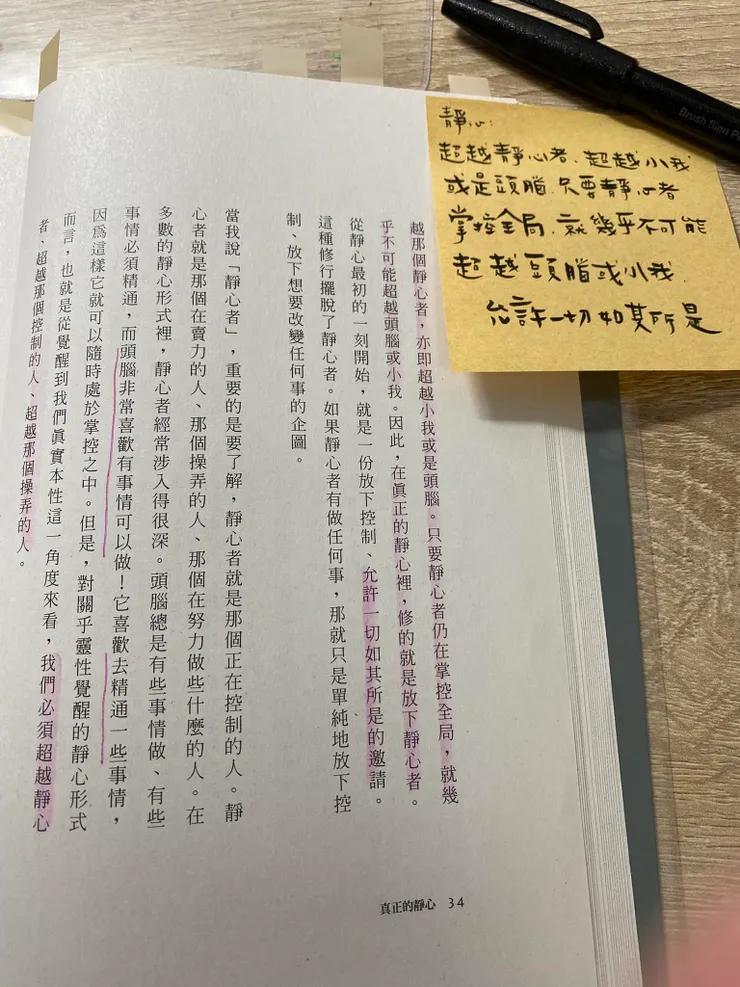 靜心：
超越靜心者、超越小我
或是頭腦、只要靜心者
掌控全局、就幾乎不可能
超越頭腦或小我、
允許一切如其所是
Brush Sign Pe
越那個靜心者，亦即超越小我或是頭腦。只要靜心者仍在掌控全局，就幾
乎不可能超越頭腦或小我。因此，在真正的靜心裡，修的就是放下靜心者。
從靜心最初的一刻開始，就是一份放下控制、允許一切如其所是的邀請。
這種修行擺脫了靜心者。如果靜心者有做任何事，那就只是單純地放下控
制、放下想要改變任何事的企圖。
當我說「靜心者」，重要的是要了解，靜心者就是那個正在控制的人。靜
心者就是那個在賣力的人、那個操弄的人、那個在努力做些什麼的人。在
多數的靜心形式裡，靜心者經常涉入得很深。頭腦總是有些事情做、有些
事情必須精通，而頭腦非常喜歡有事情可以做！它喜歡去精通一些事情，
因為這樣它就可以隨時處於掌控之中。但是，對關乎靈性覺醒的靜心形式
而言，也就是從覺醒到我們真實本性這一角度來看，我們必須超越靜心
者、超越那個控制的人、超越那個操弄的人。
真正的靜心 34